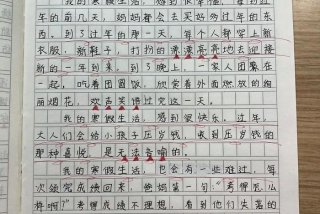 我的寒假生活,
年的前几天,妈妈都会去买好多过年的东
西。到了过年的那一天,每个人都穿上新
衣服,新鞋子,打扮的漂漂亮亮地去迎接
新的一年到来,到了晚上,一家人团聚在
一起,吃着团圆饭,欣赏着外面燃放的绚
丽烟花,欢声笑语过完这一天。
我的寒假生活,感到很快乐。过年,
大人们会给小孩子压岁钱,收到压岁钱的
那种喜悦,是无法言喻的。
我的寒假生活,也会有一些难过,每
次领完成绩回来,爸妈第一句:“考得怎么
样啊?”考得成绩不理想,看到他们失落的